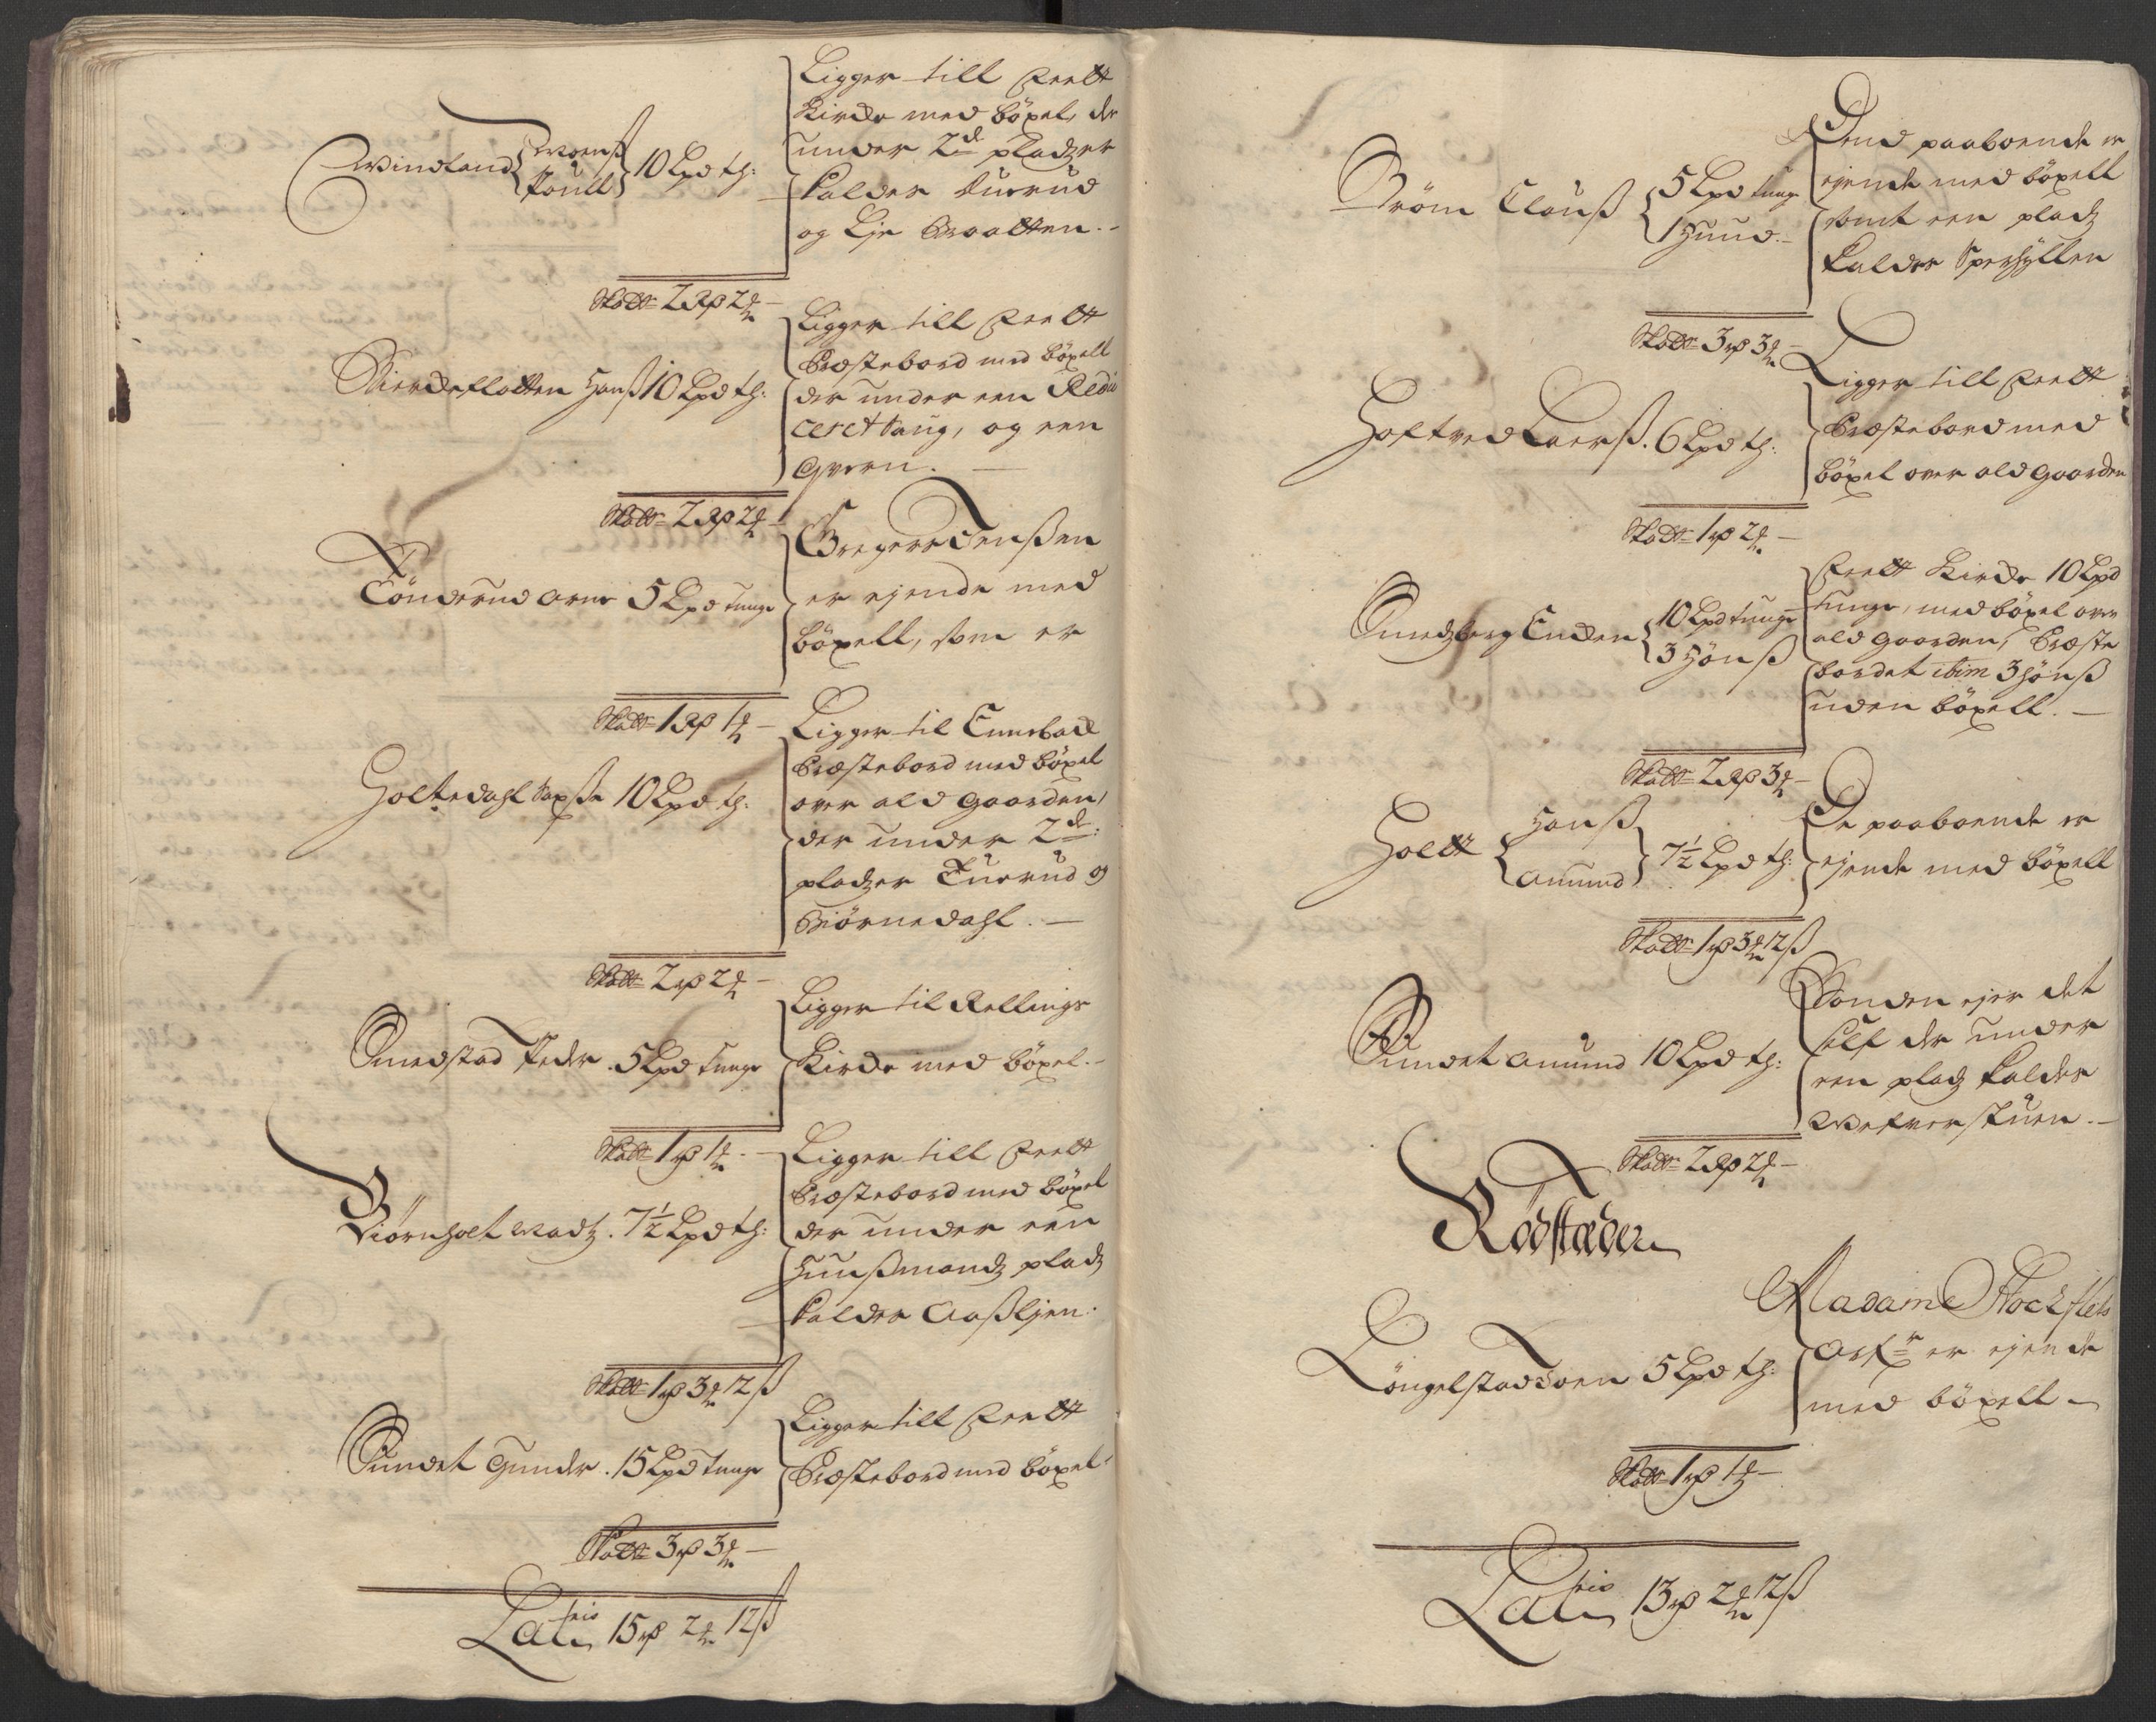 Windland { Moenß
Poull } 10 Lpd th:
Ligger till Feelt
Kircke med böxel, der
under 2de pladzer
kalder Aurud
og Lje Braatten.-
Skatt 2 Rß 2 ₰ -
Kierckeflatten Hanß 10 Lpd th:
Ligger till Feelt
Præstebord med böxell
der under een Redu
ceret Saug, og een
Qvern. -
Skatt 2 Rß 2 ₰ -
Tönderud Arne 5 Lpd tunge
Gregers Jenßen
er ejende med
böxell, som er
Skatt 1 Rß 1 ₰ -
Holtedahl 10 Lpd th:
Ligger til Enneback
Præstebord med böxel
over ald Gaarden,
der under 2de:
pladzer Tuerud og
Biörnedahl. -
Skatt 2 rß 2 ₰ -
Smedstad Peder. 5 Lpd tunge
Ligger til Rellings
Kircke med böxel.-
Skatt 1 rß 1 ₰ . -
Biörnholt Madtz. 7½ Lpd th:
Ligger till Feelt
Præstebord med böxel
der under een
Huußmandz pladz
kalder Aaßljen.
Skatt 1 rß 3 ₰ 12 ß
Sundet Gunder. 15 Lpd tunge
Ligger till Feelt
Præstebord med böxel-
Skatt 3 rß 3 ₰ -
Lateris 15 rß 2 ₰ 12 ß
Ström Clauß { 5 Lpd tunge
1 Huud.-
Dend paaboende er
ejende med böxell
samt een pladz
kalder Sperhyllen
Skatt 3 rß 3 ₰ -
Holtved Laerß. 6 Lpd th:
Ligger till Feelt
Præstebord med
böxel over ald Gaarden
Skatt 1 rß 2 ₰ -
Smedzberg Enden { 10 Lpd tunge
3 Hönß
Feelt Kircke 10 Lpd
tunge, med böxel over
ald Gaarden, Præste
bordet ibim 3 hönß
uden böxell. -
Skatt 2 Rß 3 ₰ -
Holtt { Hanß
Amund } 7½ Lpd th:
De paaboende er
ejende med böxell
Skatt 1 rß 3 ₰ 12 ß
Sundet Amund 10 Lpd th:
Bonden ejer det
self der under
een pladz kalder
Wefverstuen.-
Skatt 2 Rß 2 ₰ -
Rödstæder
Löngelstad Joen 5 Lpd th:
Madame Stockfleths
Arfr: er ejende
med böxell -
Skatt 1 rß 1 ₰ -
Lateris 13 rß 2 ₰ 12 ß